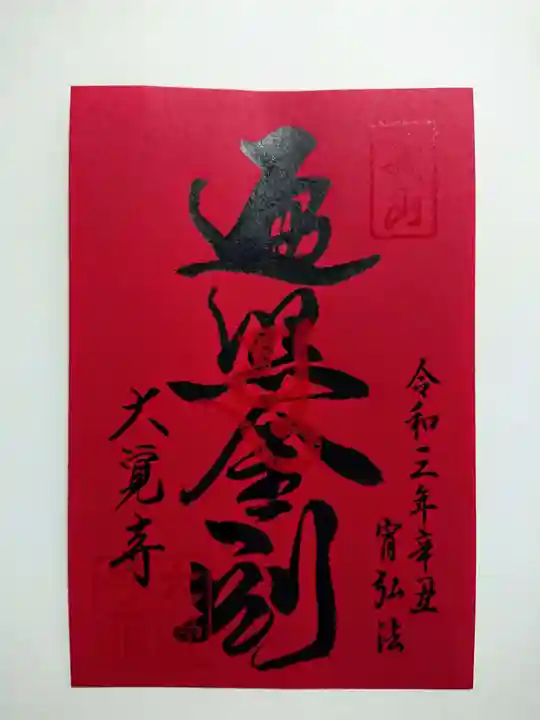 令和三年辛丑
宵弘法
遍照金剛
大覚寺